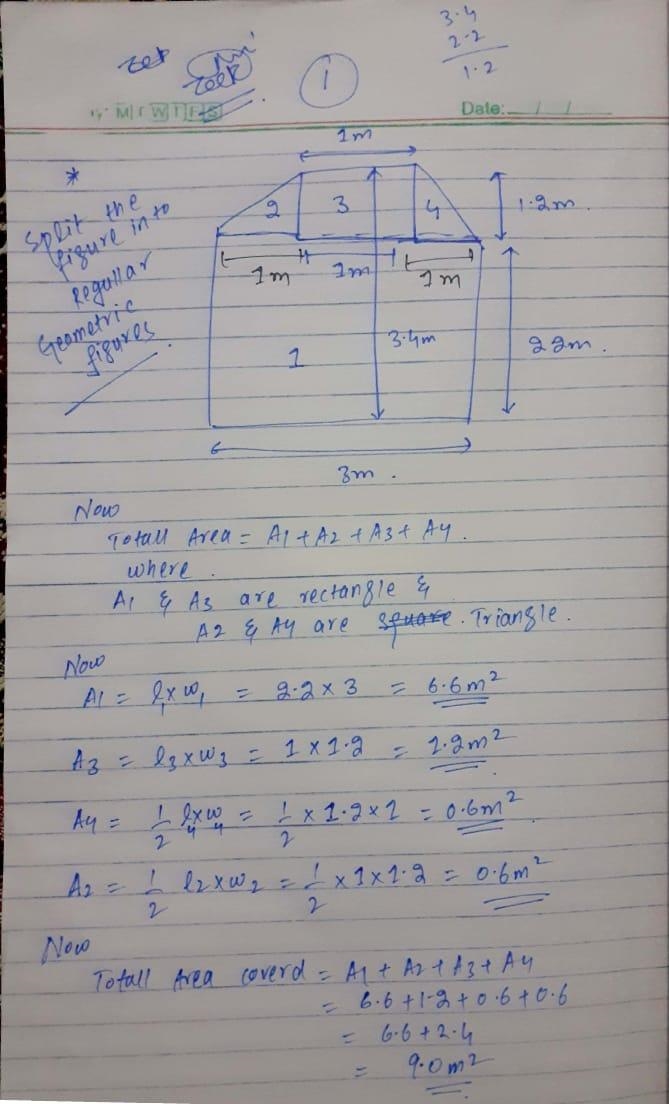 zek
zeek
1
3.4
2.2
1.2
M T W T F S
Date: / /
*
Split the
figure into
Regullar
Geometric
figures.
1m
2
3
4
1.2m.
1m
1m
1m
1
3.4m
22m.
3m.
Now
Totall Area = A1 + A2 + A3 + A4.
where.
A1 & A3 are rectangle &
A2 & A4 are square. Triangle.
Now
A1 = l1 x w1 = 2.2 x 3 = 6.6 m2
A3 = l3 x w3 = 1 x 1.2 = 1.2 m2
A4 = 1/2 l4 x w4 = 1/2 x 1.2 x 1 = 0.6 m2
A2 = 1/2 l2 x w2 = 1/2 x 1 x 1.2 = 0.6 m2
Now
Totall Area coverd = A1 + A2 + A3 + A4
= 6.6 + 1.2 + 0.6 + 0.6
= 6.6 + 2.4
= 9.0 m2